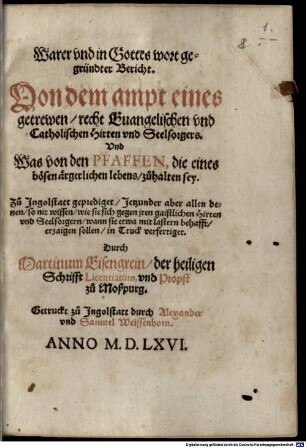 1.
Warer vnd in Gottes wort ge-
gründter Bericht.
Von dem ampt eines
getrewen / recht Euangelischen vnd
Catholischen Hirten vnd Seelsorgers.
Vnd
Was von den PFAFFEN, die eines
bösen ärgerlichen lebens / zůhalten sey.
Zů Ingolstatt geprediget / Jetzunder aber allen de-
nen / so nit wissen / wie sie sich gegen jren gaistlichen Hirten
vnd Seelsorgern / wann sie etwa mit lastern behafft /
erzaigen sollen / in Truck verfertiget.
Durch
Martinum Eisengrein / der heiligen
Schrifft Licentiatum, vnd Propst
zů Moßpurg.
Getruckt zů Ingolstatt durch Alexander
vnd Samuel Weissenhorn.
ANNO M. D. LXVI.